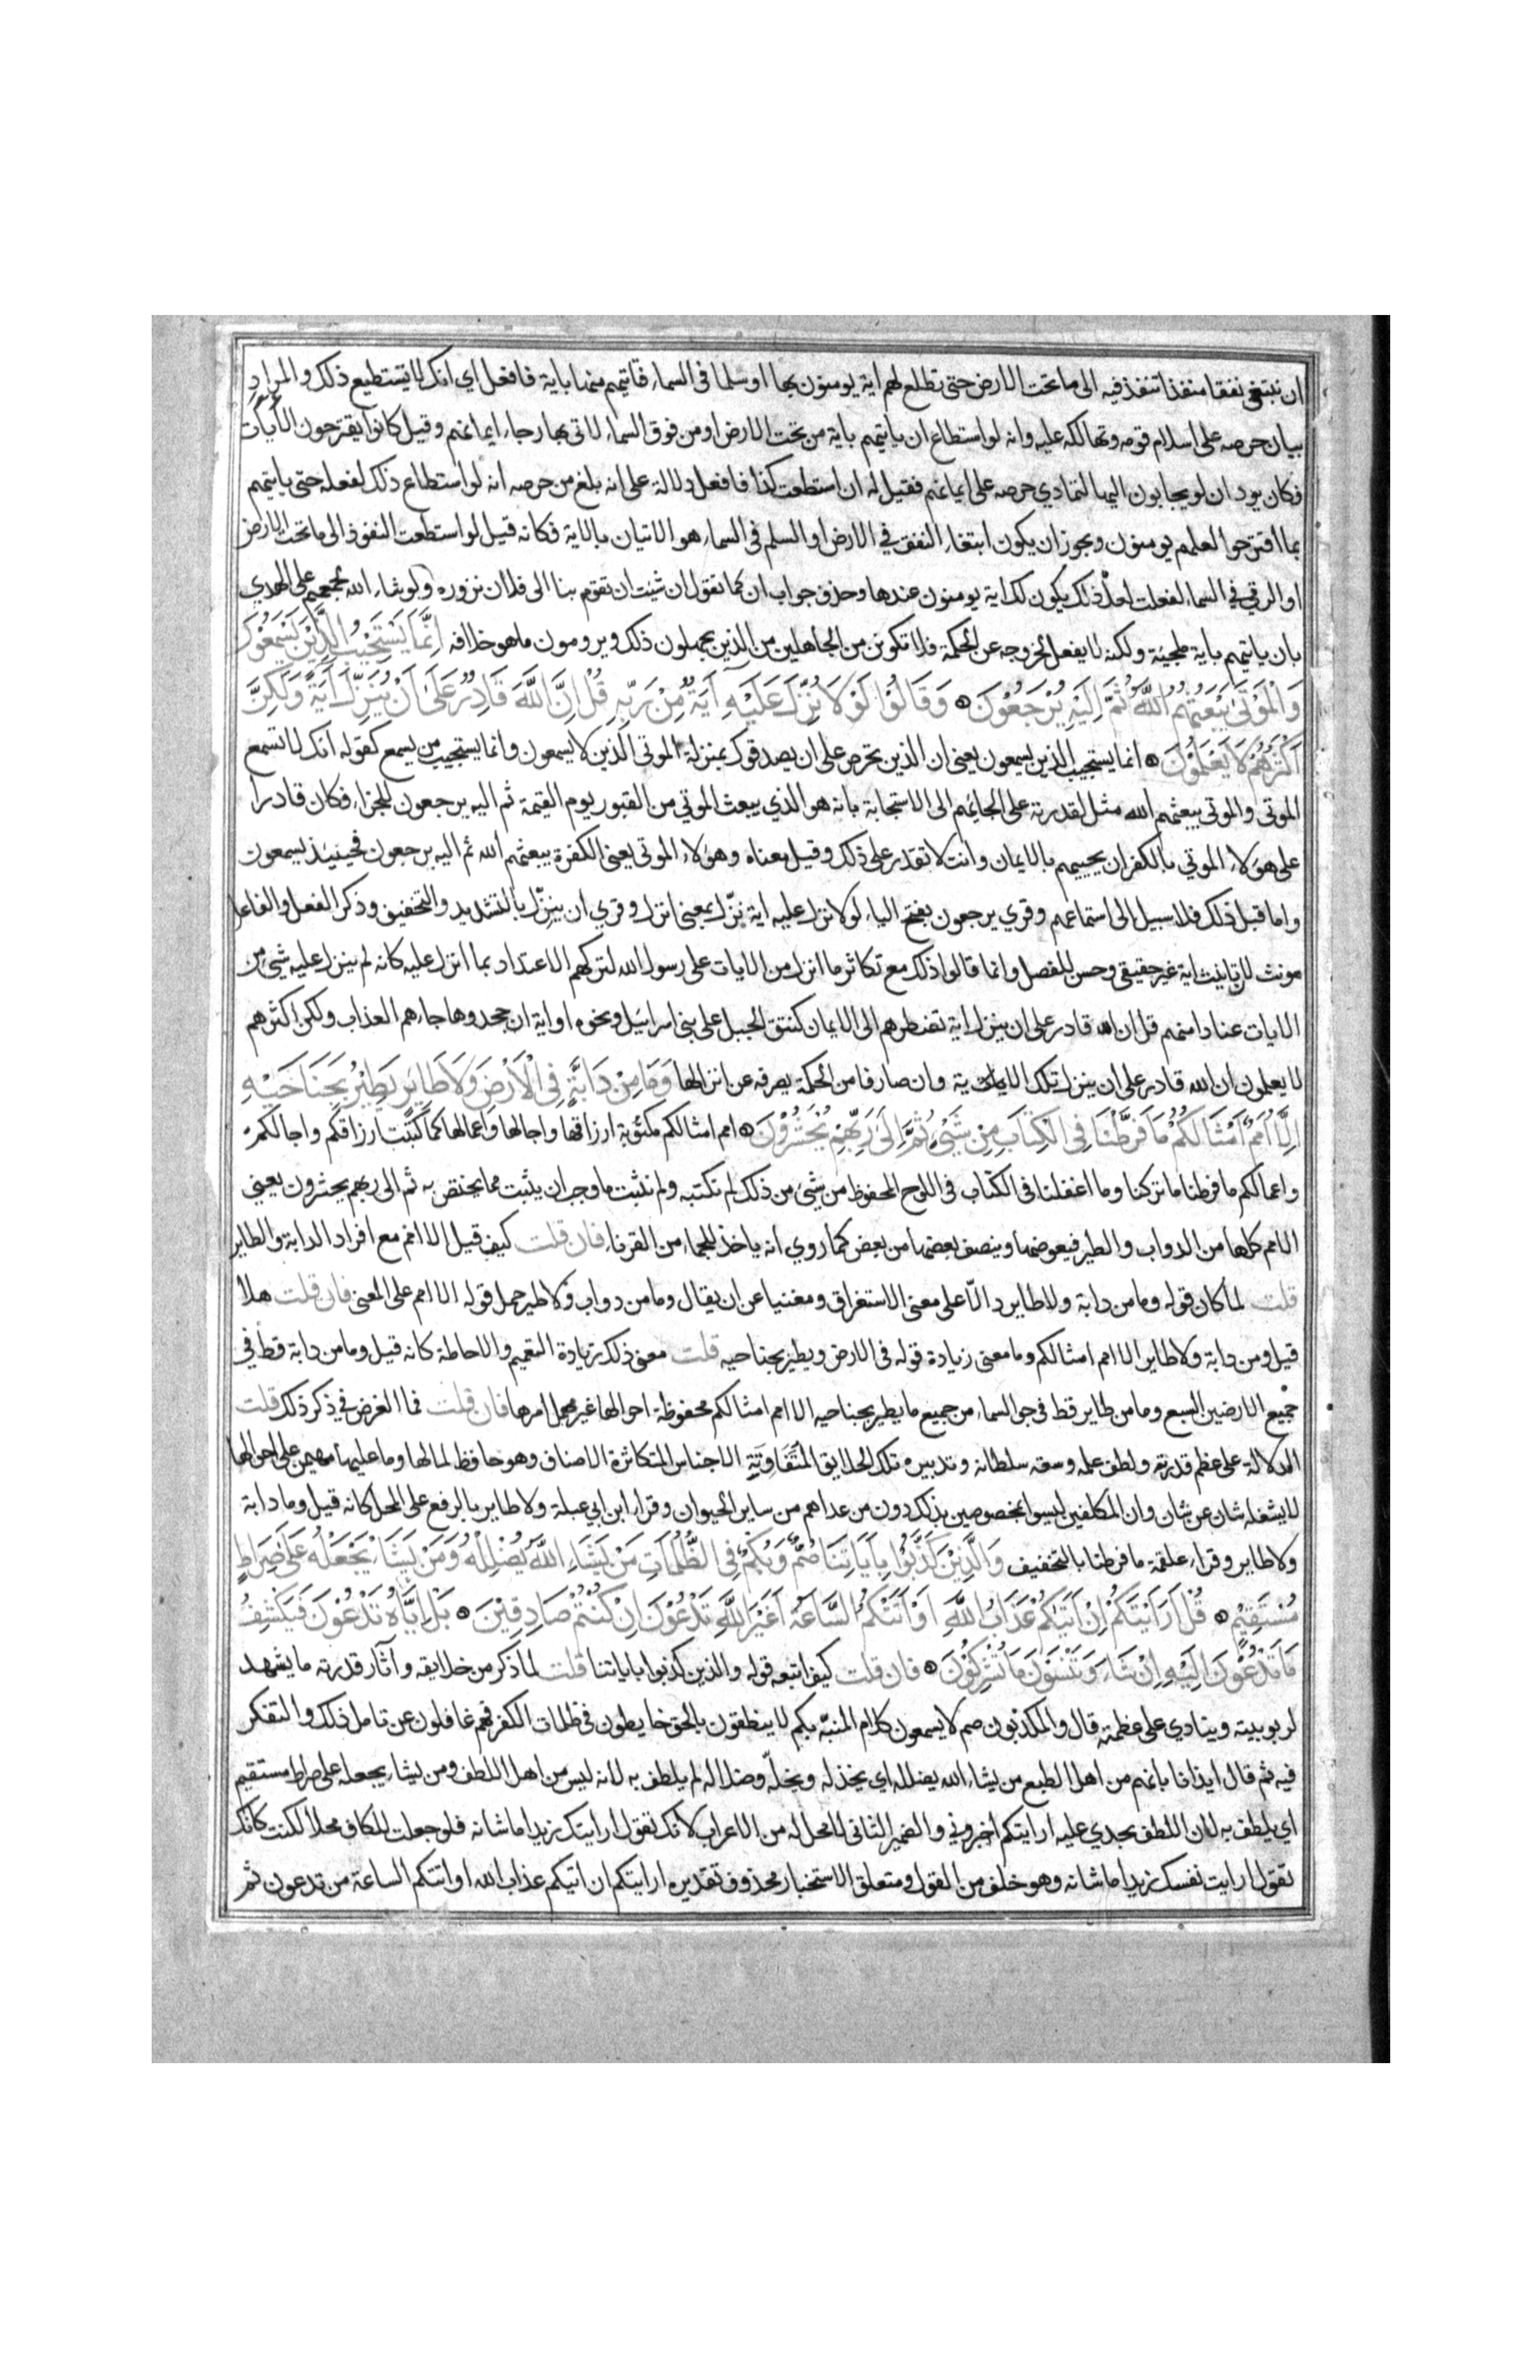 ان تبتغي نفقا منفذا تنفذ فيه الى ما تحت الارض حتى تطلع لهم اية يومنون بها او سلما في السماء فتاتيهم منها باية فافعل اي انك لا تستطيع ذلك والمراد
بيان حرصه على اسلام قومه وتهالكه عليه وانه لو استطاع ان ياتيهم باية من تحت الارض او من فوق السماء لاتى بها رجاء ايمانهم وقيل كانوا يقترحون الآيات
فكان يود ان لو يجابون اليها لتمادي حرصه على ايمانهم فقيل له ان استطعت كذا فافعل دلالة على انه بلغ من حرصه انه لو استطاع ذلك لفعله حتى ياتيهم
بما اقترحوا لعلهم يومنون ويجوز ان يكون ابتغاء النفق في الارض او السلم في السماء هو الاتيان بالاية فكانه قيل لو استطعت النفوذ الى ما تحت الارض
او الرقي في السماء لفعلت لعل ذلك يكون لك اية يومنون عندها وحذف جواب ان كما تقول ان شئت ان تقوم بنا الى فلان نزوره ولو شاء الله لجمعهم على الهدي
بان ياتيهم باية ملجئة ولكنه لا يفعل لخروجه عن الحكمة فلا تكونن من الجاهلين من الذين يجهلون ذلك ويرومون ما هو خلافه اِنَّمَا يَسْتَجِيْبُ الَّذِيْنَ يَسْمَعُوْنَ
وَالْمَوْتَى يَبْعَثُهُمُ اللَّهُ ثُمَّ اِلَيْهِ يُرْجَعُوْنَ وَقَالُوْا لَوْلَا نُزِّلَ عَلَيْهِ آيَةٌ مِنْ رَبِّهِ قُلْ اِنَّ اللَّهَ قَادِرٌ عَلَى اَنْ يُنَزِّلَ آيَةً وَلَكِنَّ
اَكْثَرَهُمْ لَا يَعْلَمُوْنَ انما يستجيب الذين يسمعون يعني ان الذين تحرص على ان يصدقوك بمنزلة الموتى الذين لا يسمعون وانما يستجيب من يسمع كقوله انك لا تسمع
الموتى والموتى يبعثهم الله مثل لقدرته على الجائهم الى الاستجابة بانه هو الذي يبعث الموتي من القبور يوم القيمة ثم اليه يرجعون للجزاء فكان قادرا
على هولاء الموتي بالكفر ان يحييهم بالايمان وانت لا تقدر على ذلك وقيل معناه وهولاء الموتى يعني الكفرة يبعثهم الله ثم اليه يرجعون فحينيذ يسمعون
واما قبل ذلك فلا سبيل الى استماعهم وقري يرجعون بفتح الياء لولا نزل عليه اية نزّل بمعنى انزل وقري ان ينزّل بالتشديد والتخفيف وذكر الفعل والفاعل
مونث لان تانيث اية غير حقيقي وحسن للفصل وانما قالوا ذلك مع تكاثر ما انزل من الايات على رسول الله لتركهم الاعتداد بما انزل عليه كانه لم ينزل عليه شئ من
الايات عنادا منهم قل ان الله قادر على ان ينزل اية تضطرهم الى الايمان كنتق الجبل على بني اسرائيل ونحوه او اية ان جحدوها جاءهم العذاب ولكن اكثرهم
لا يعلمون ان الله قادر على ان ينزل تلك الاية وان صارفا من الحكمة يصرفه عن انزالها وَمَا مِنْ دَابَّةٍ فِي الْاَرْضِ وَلَا طَايِرٍ يَطِيْرُ بِجَنَاحَيْهِ
اِلَّا اُمَمٌ اَمْثَالُكُمْ مَا فَرَّطْنَا فِي الْكِتَابِ مِنْ شَيْئٍ ثُمَّ اِلَى رَبِّهِمْ يُحْشَرُوْنَ امم امثالكم مكتوبة ارزاقها واجالها واعمالها كما كتبت ارزاقكم واجالكم
واعمالكم ما فرطنا ما تركنا وما اغفلنا في الكتاب في اللوح المحفوظ من شئ من ذلك لم نكتبه ولم نثبت ما وجب ان يثبت مما يختص به ثم الى ربهم يحشرون يعني
الامم كلها من الدواب والطير فيعوضها وينصف بعضها من بعض كما روي انه ياخذ للجماء من القرناء فان قلت كيف قيل الا امم مع افراد الدابة والطاير
قلت لما كان قوله وما من دابة ولا طاير دالّا على معنى الاستغراق ومغنيا عن ان يقال وما من دواب ولا طير حمل قوله الا امم على المعنى فان قلت هلا
قيل وما من دابة ولا طاير الا امم امثالكم وما معنى زيادة قوله في الارض ويطير بجناحيه قلت معنى ذلك زيادة التعميم والاحاطة كانه قيل وما من دابة قط في
جميع الارضين السبع وما من طاير قط في جو السماء من جميع ما يطير بجناحيه الا امم امثالكم محفوظة احوالها غير مهمل امرها فان قلت فما الغرض في ذكر ذلك قلت
الدلالة على عظم قدرته ولطف علمه وسعه سلطانه وتدبيره تلك الخلايق المُتَفَاوِتَةِ الاجناس المتكاثرة الاصناف وهو حافظ لما لها وما عليها مهيمن على احوالها
لا يشغله شان عن شان وان المكلفين ليسوا بمخصوصين بذلك دون من عداهم من ساير الحيوان وقراء ابن ابي عبلة ولا طاير بالرفع على المحل كانه قيل وما دابة
ولا طاير وقراء علقمة ما فرطنا بالتخفيف وَالَّذِيْنَ كَذَّبُوْا بِآيَاتِنَا صُمٌّ وَبُكْمٌ فِي الظُّلُمَاتِ مَنْ يَشَاءِ اللَّهُ يُضْلِلْهُ وَمَنْ يَشَاءْ يَجْعَلْهُ عَلَى صِرَاطٍ
مُسْتَقِيْمٍ قُلْ اَرَاَيْتَكُمْ اِنْ اَتَيكُمْ عَذَابُ اللَّهِ اَوْ اَتَتْكُمُ السَّاعَةُ اَغَيْرَ اللَّهِ تَدْعُوْنَ اِنْ كُنْتُمْ صَادِقِيْنَ بَلْ اِيَّاهُ تَدْعُوْنَ فَيَكْشِفُ
مَا تَدْعُوْنَ اِلَيْهِ اِنْ شَاءَ وَتَنْسَوْنَ مَا تُشْرِكُوْنَ فان قلت كيف اتبعه قوله والذين كذبوا باياتنا قلت لما ذكر من خلايقه وآثار قدرته ما يشهد
لربوبيته وينادي على عظمته قال والمكذبون صم لا يسمعون كلام المنبّه بكم لا ينطقون بالحق خابطون في ظلمات الكفر فهم غافلون عن تامل ذلك والتفكر
فيه ثم قال ايذانا بانهم من اهل الطبع من يشاء الله يضلله اي يخذله ويخلّه وضلاله لم يلطف به لانه ليس من اهل اللطف ومن يشاء يجعله على صراط مستقيم
اي يلطف به لان اللطف يجدي عليه ارايتكم اخبروني والضمير الثاني لا محل له من الاعراب لانك تقول ارايتك زيدا ما شانه فلو جعلت للكاف محلا لكنت كانك
تقول ارايت نفسك زيدا ما شانه وهو خلف من القول ومتعلق الاستخبار محذوف تقديره ارايتكم ان اتيكم عذاب الله او اتتكم الساعة من تدعون ثم